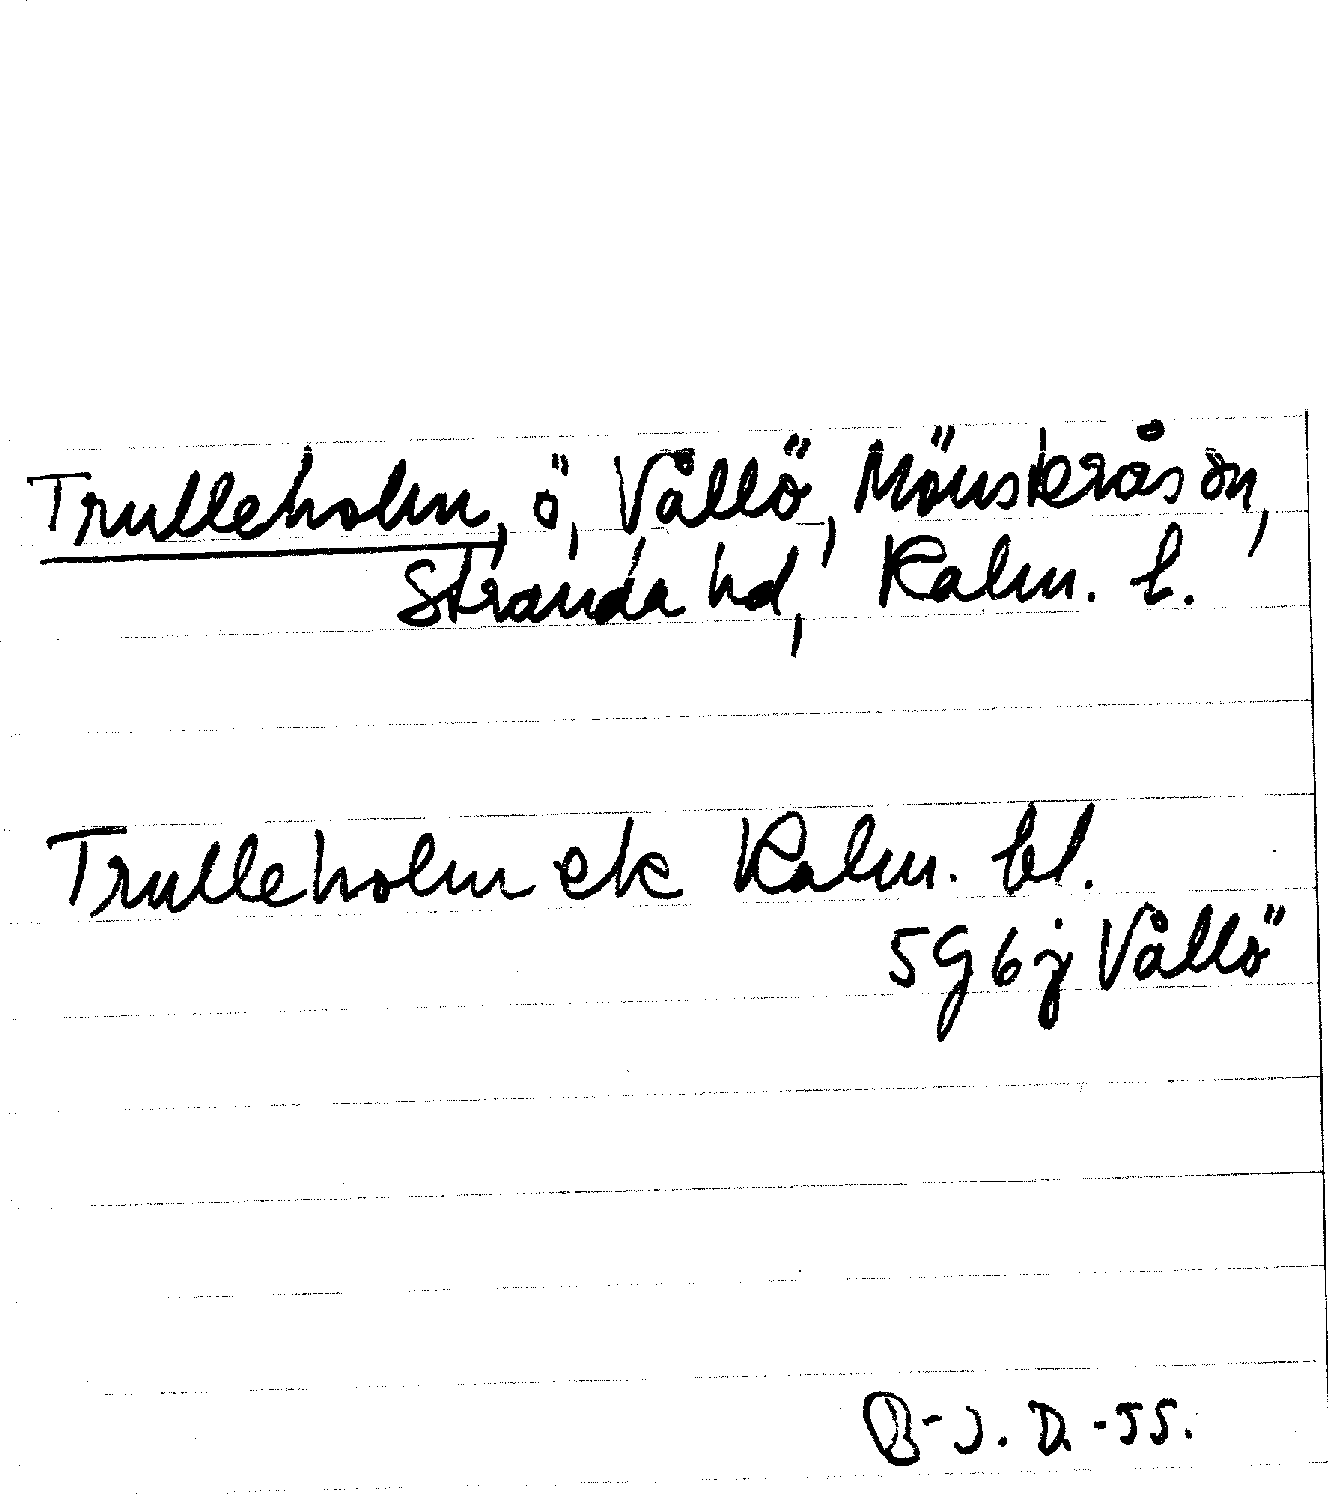 Trulleholm, ö, Vållö, Mönsterås sn,
Stranda hd, Kalm. l.
Trulleholm ek Kalm. bl.
5G6j Vållö
B-J. D. -55.